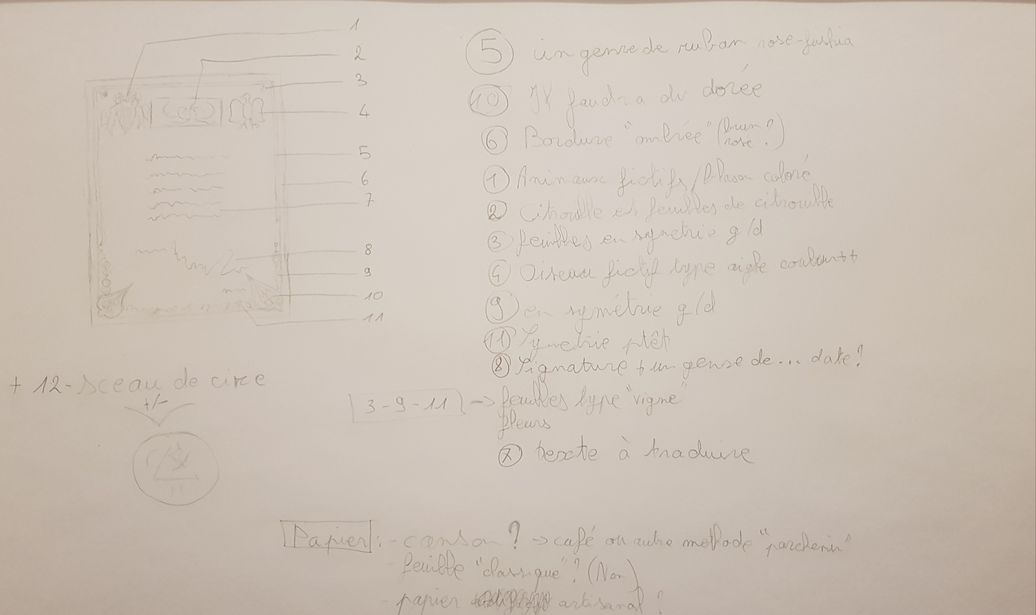 1
2
3
4
5
6
7
8
9
10
11
⑤ un genre de ruban rose-fushia
⑩ Il faudra du dorée
⑥ Bordure "ombrée" (brun ? rose ?)
① Animaux fictifs / blason colorié
② Citrouille et feuilles de citrouille
③ feuilles en symetrie g/d
④ Oiseau fictif type aigle couleur++
⑨ en symétrie g/d
⑪ Symetrie ptêt
⑧ Signature + un genre de... date?
+ 12-Sceau de cire
+/-
3-9-11 → feuilles type "vigne"
fleurs
⑦ texte à traduire
Papier : - canson ? → café ou autre méthode "parchemin"
- feuille "classique" ? (Non)
- papier artisanal ?